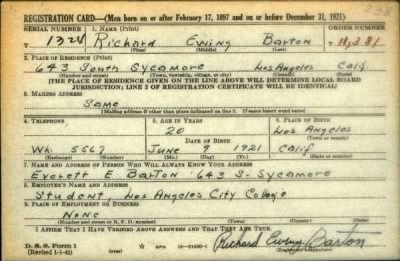 REGISTRATION CARD—(Men born on or after February 17, 1897 and on or before December 31, 1921)
SERIAL NUMBER 1. NAME (Print) ORDER NUMBER
T 1324 Richard Ewing Barton
(First) (Middle) (Last)
2. PLACE OF RESIDENCE (Print)
643 South Sycamore Los Angeles Calif.
(Number and street) (Town, township, village, or city) (County) (State)
[THE PLACE OF RESIDENCE GIVEN ON THE LINE ABOVE WILL DETERMINE LOCAL BOARD
JURISDICTION; LINE 2 OF REGISTRATION CERTIFICATE WILL BE IDENTICAL]
3. MAILING ADDRESS
Same
[Mailing address if other than place indicated on line 2. If same insert word same]
4. TELEPHONE 5. AGE IN YEARS 6. PLACE OF BIRTH
20 Los Angeles
DATE OF BIRTH (Town or county)
Wh. 5567 June 9 1921 Calif
(Exchange) (Number) (Mo.) (Day) (Yr.) (State or country)
7. NAME AND ADDRESS OF PERSON WHO WILL ALWAYS KNOW YOUR ADDRESS
Everett E Barton 643 S. Sycamore
8. EMPLOYER'S NAME AND ADDRESS
Student, Los Angeles City College
9. PLACE OF EMPLOYMENT OR BUSINESS
None
(Number and street or R. F. D. number) (Town) (County) (State)
I AFFIRM THAT I HAVE VERIFIED ABOVE ANSWERS AND THAT THEY ARE TRUE.
D. S. S. Form 1
(Revised 1-1-42) (over) Richard Ewing Barton